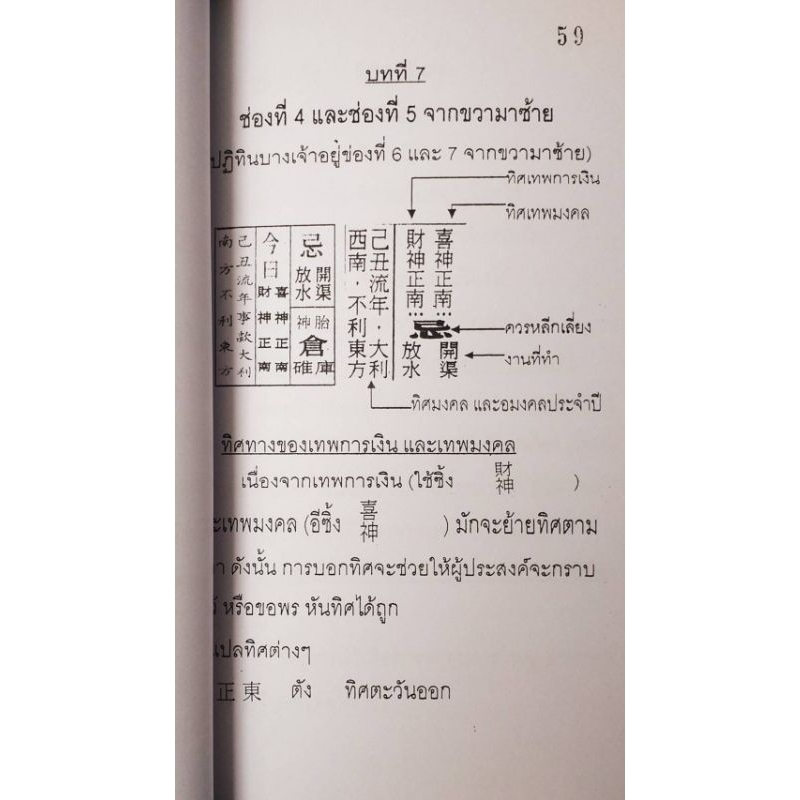 59
บทที่ 7
ช่องที่ 4 และช่องที่ 5 จากขวามาซ้าย
ปฏิทินบางเจ้าอยู่ข่องที่ 6 และ 7 จากขวามาซ้าย)
ทิศเทพการเงิน
ทิศเทพมงคล
喜神正南…
財神正南…
忌
開渠
放水
己丑流年，大利
西南，不利東方
忌
開渠
放水
胎神
倉庫
碓
今日
喜神正南
財神正南
己丑流年事款大利
南方不利東方
ควรหลีกเลี่ยง
งานที่ทำ
ทิศมงคล และอมงคลประจำปี
ทิศทางของเทพการเงิน และเทพมงคล
เนื่องจากเทพการเงิน (ใช้ซิ้ง 財神 )
ะเทพมงคล (อีซิ้ง 喜神 ) มักจะย้ายทิศตาม
า ดังนั้น การบอกทิศจะช่วยให้ผู้ประสงค์จะกราบ
หรือขอพร หันทิศได้ถูก
แปลทิศต่างๆ
正東 ตัง ทิศตะวันออก